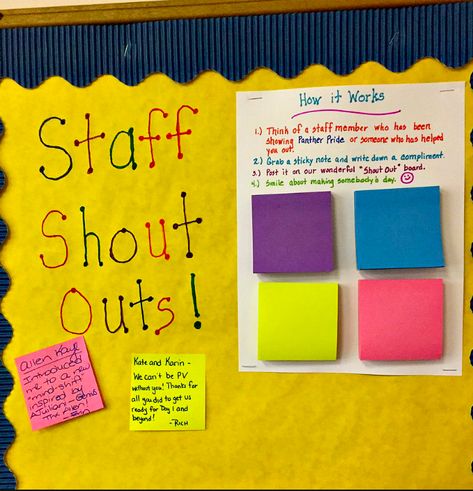 Staff
Shout
Outs!
How it Works
1.) Think of a staff member who has been
showing Panther Pride or someone who has helped
you out!
2.) Grab a sticky note and write down a compliment.
3.) Post it on our wonderful "Shout Out" board.
4.) Smile about making somebody's day.
Introduced
me to a new
"mind-shift"
inspired by
Kate and Karin -
We can't be PV
without you! Thanks for
all you did to get us
ready for Day 1 and
beyond!
- RICH